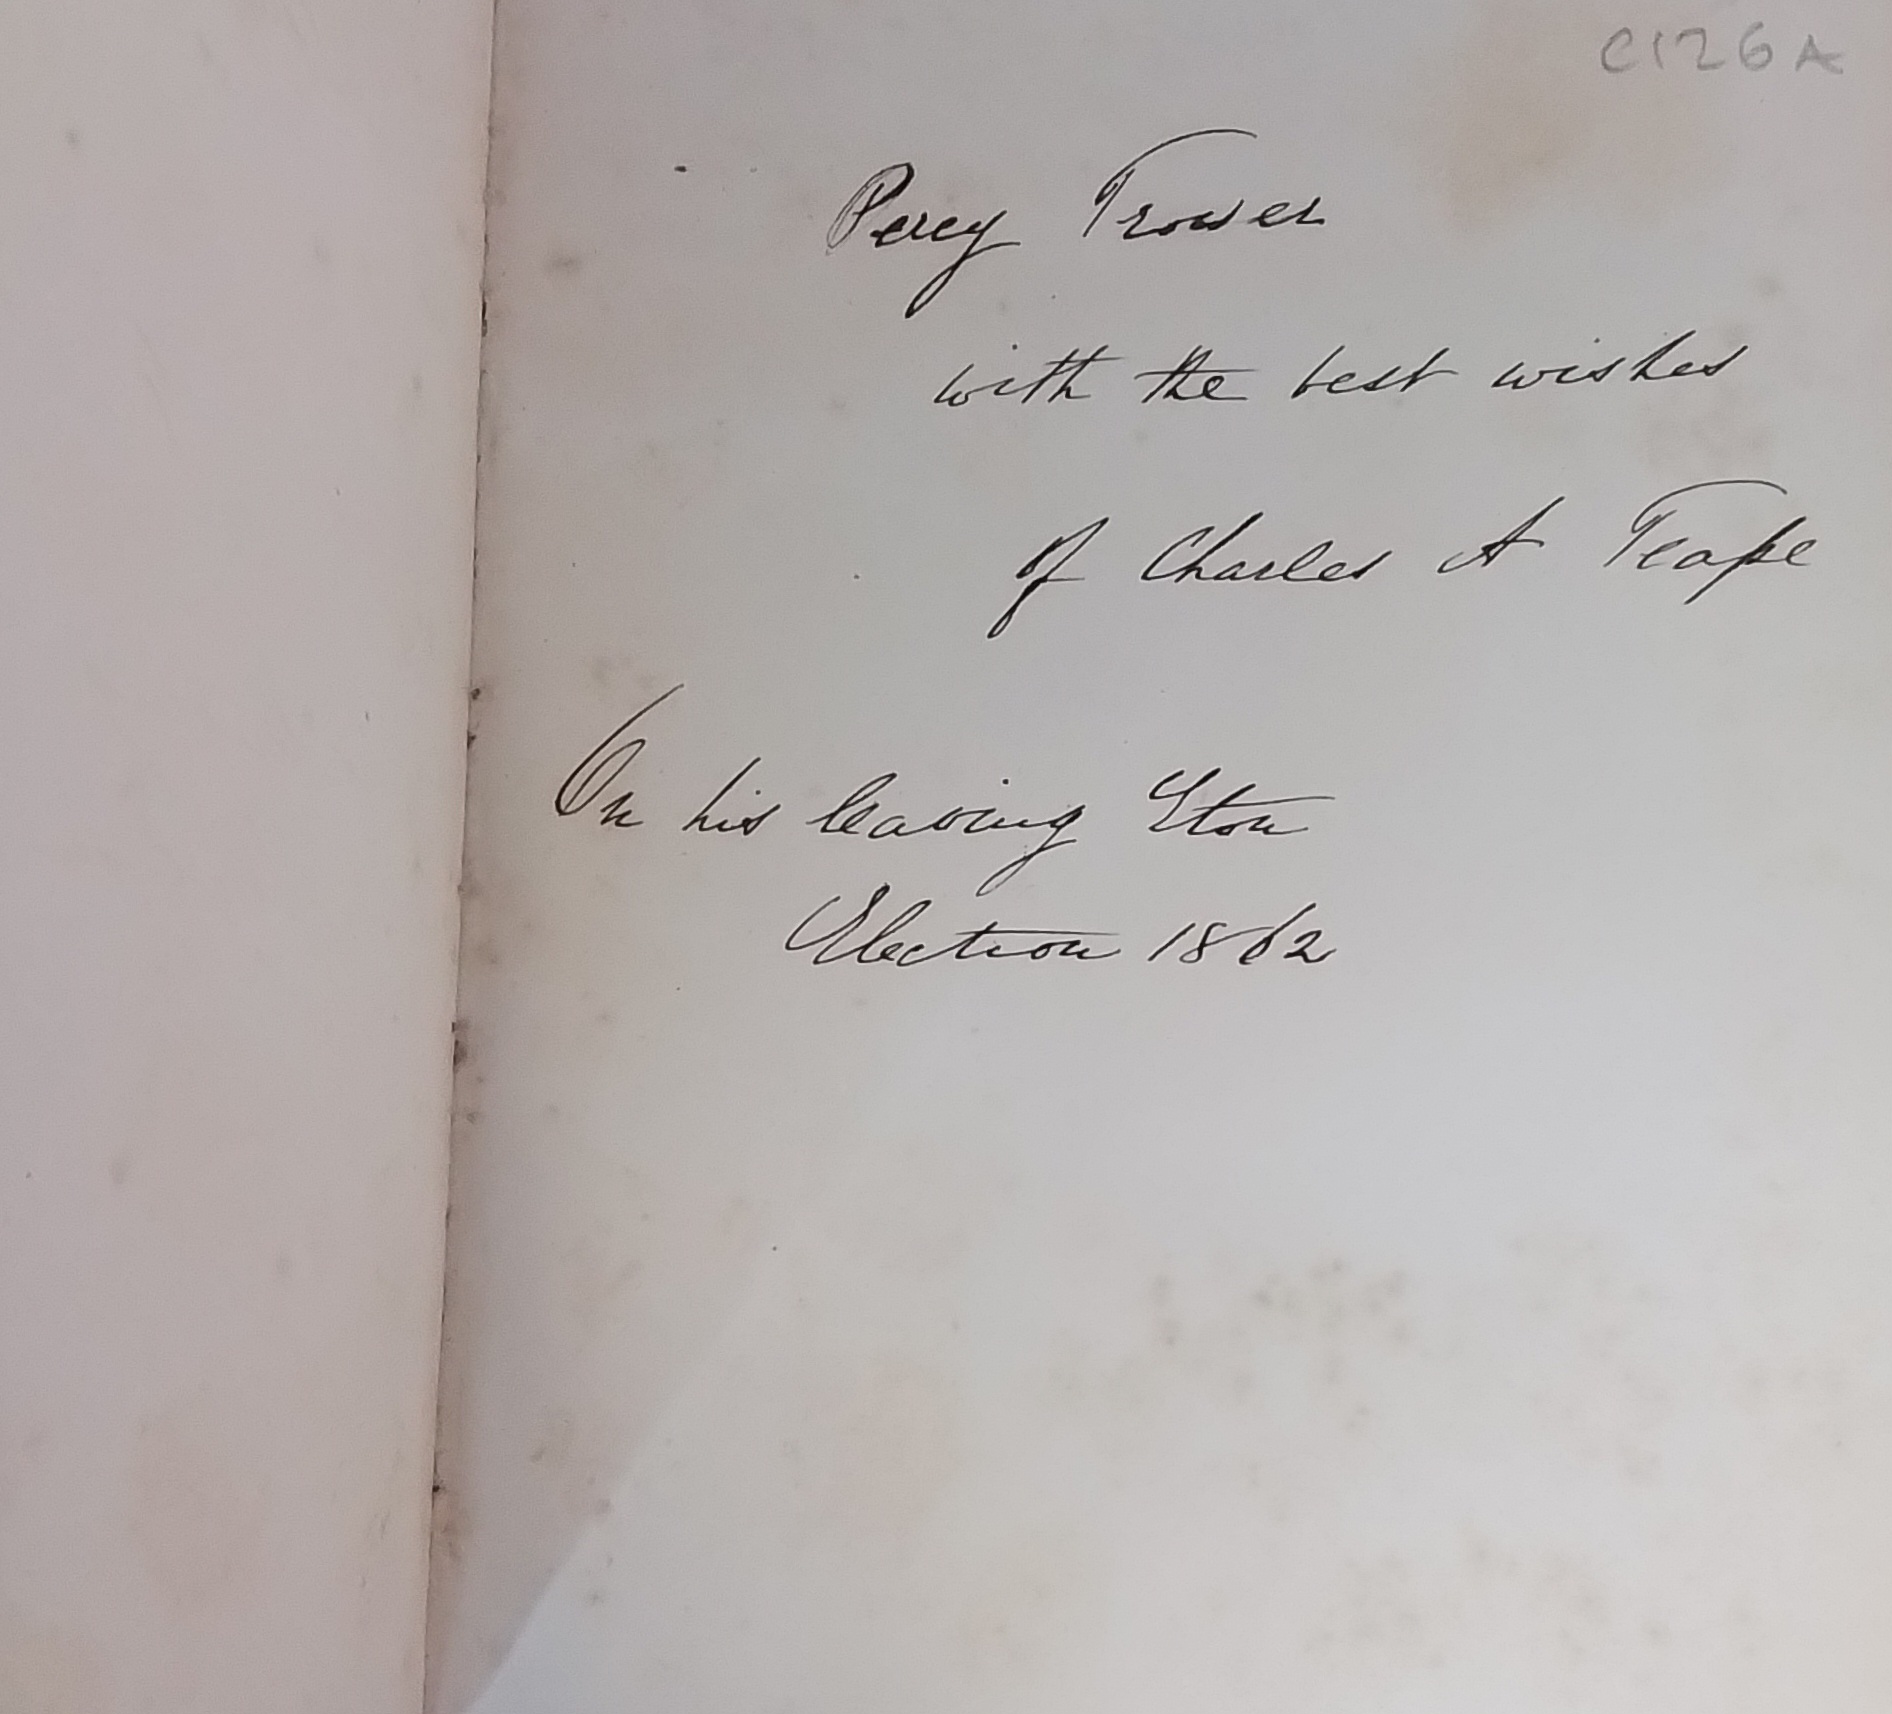 C126A
Percy Trower
with the best wishes
of Charles A Teape
On his leaving Eton
Election 1862